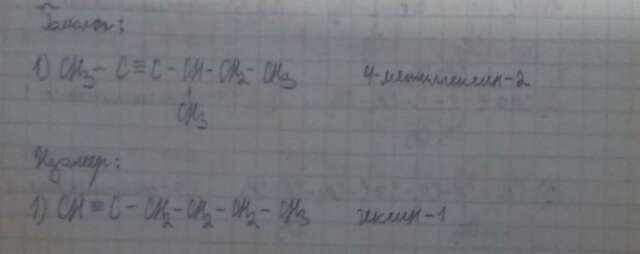 Гомолог:
1) CH₃ - C ≡ C - CH - CH₂ - CH₃ 4-метилгексин-2
CH₃
Изомер:
1) CH ≡ C - CH₂ - CH₂ - CH₂ - CH₃ гексин-1